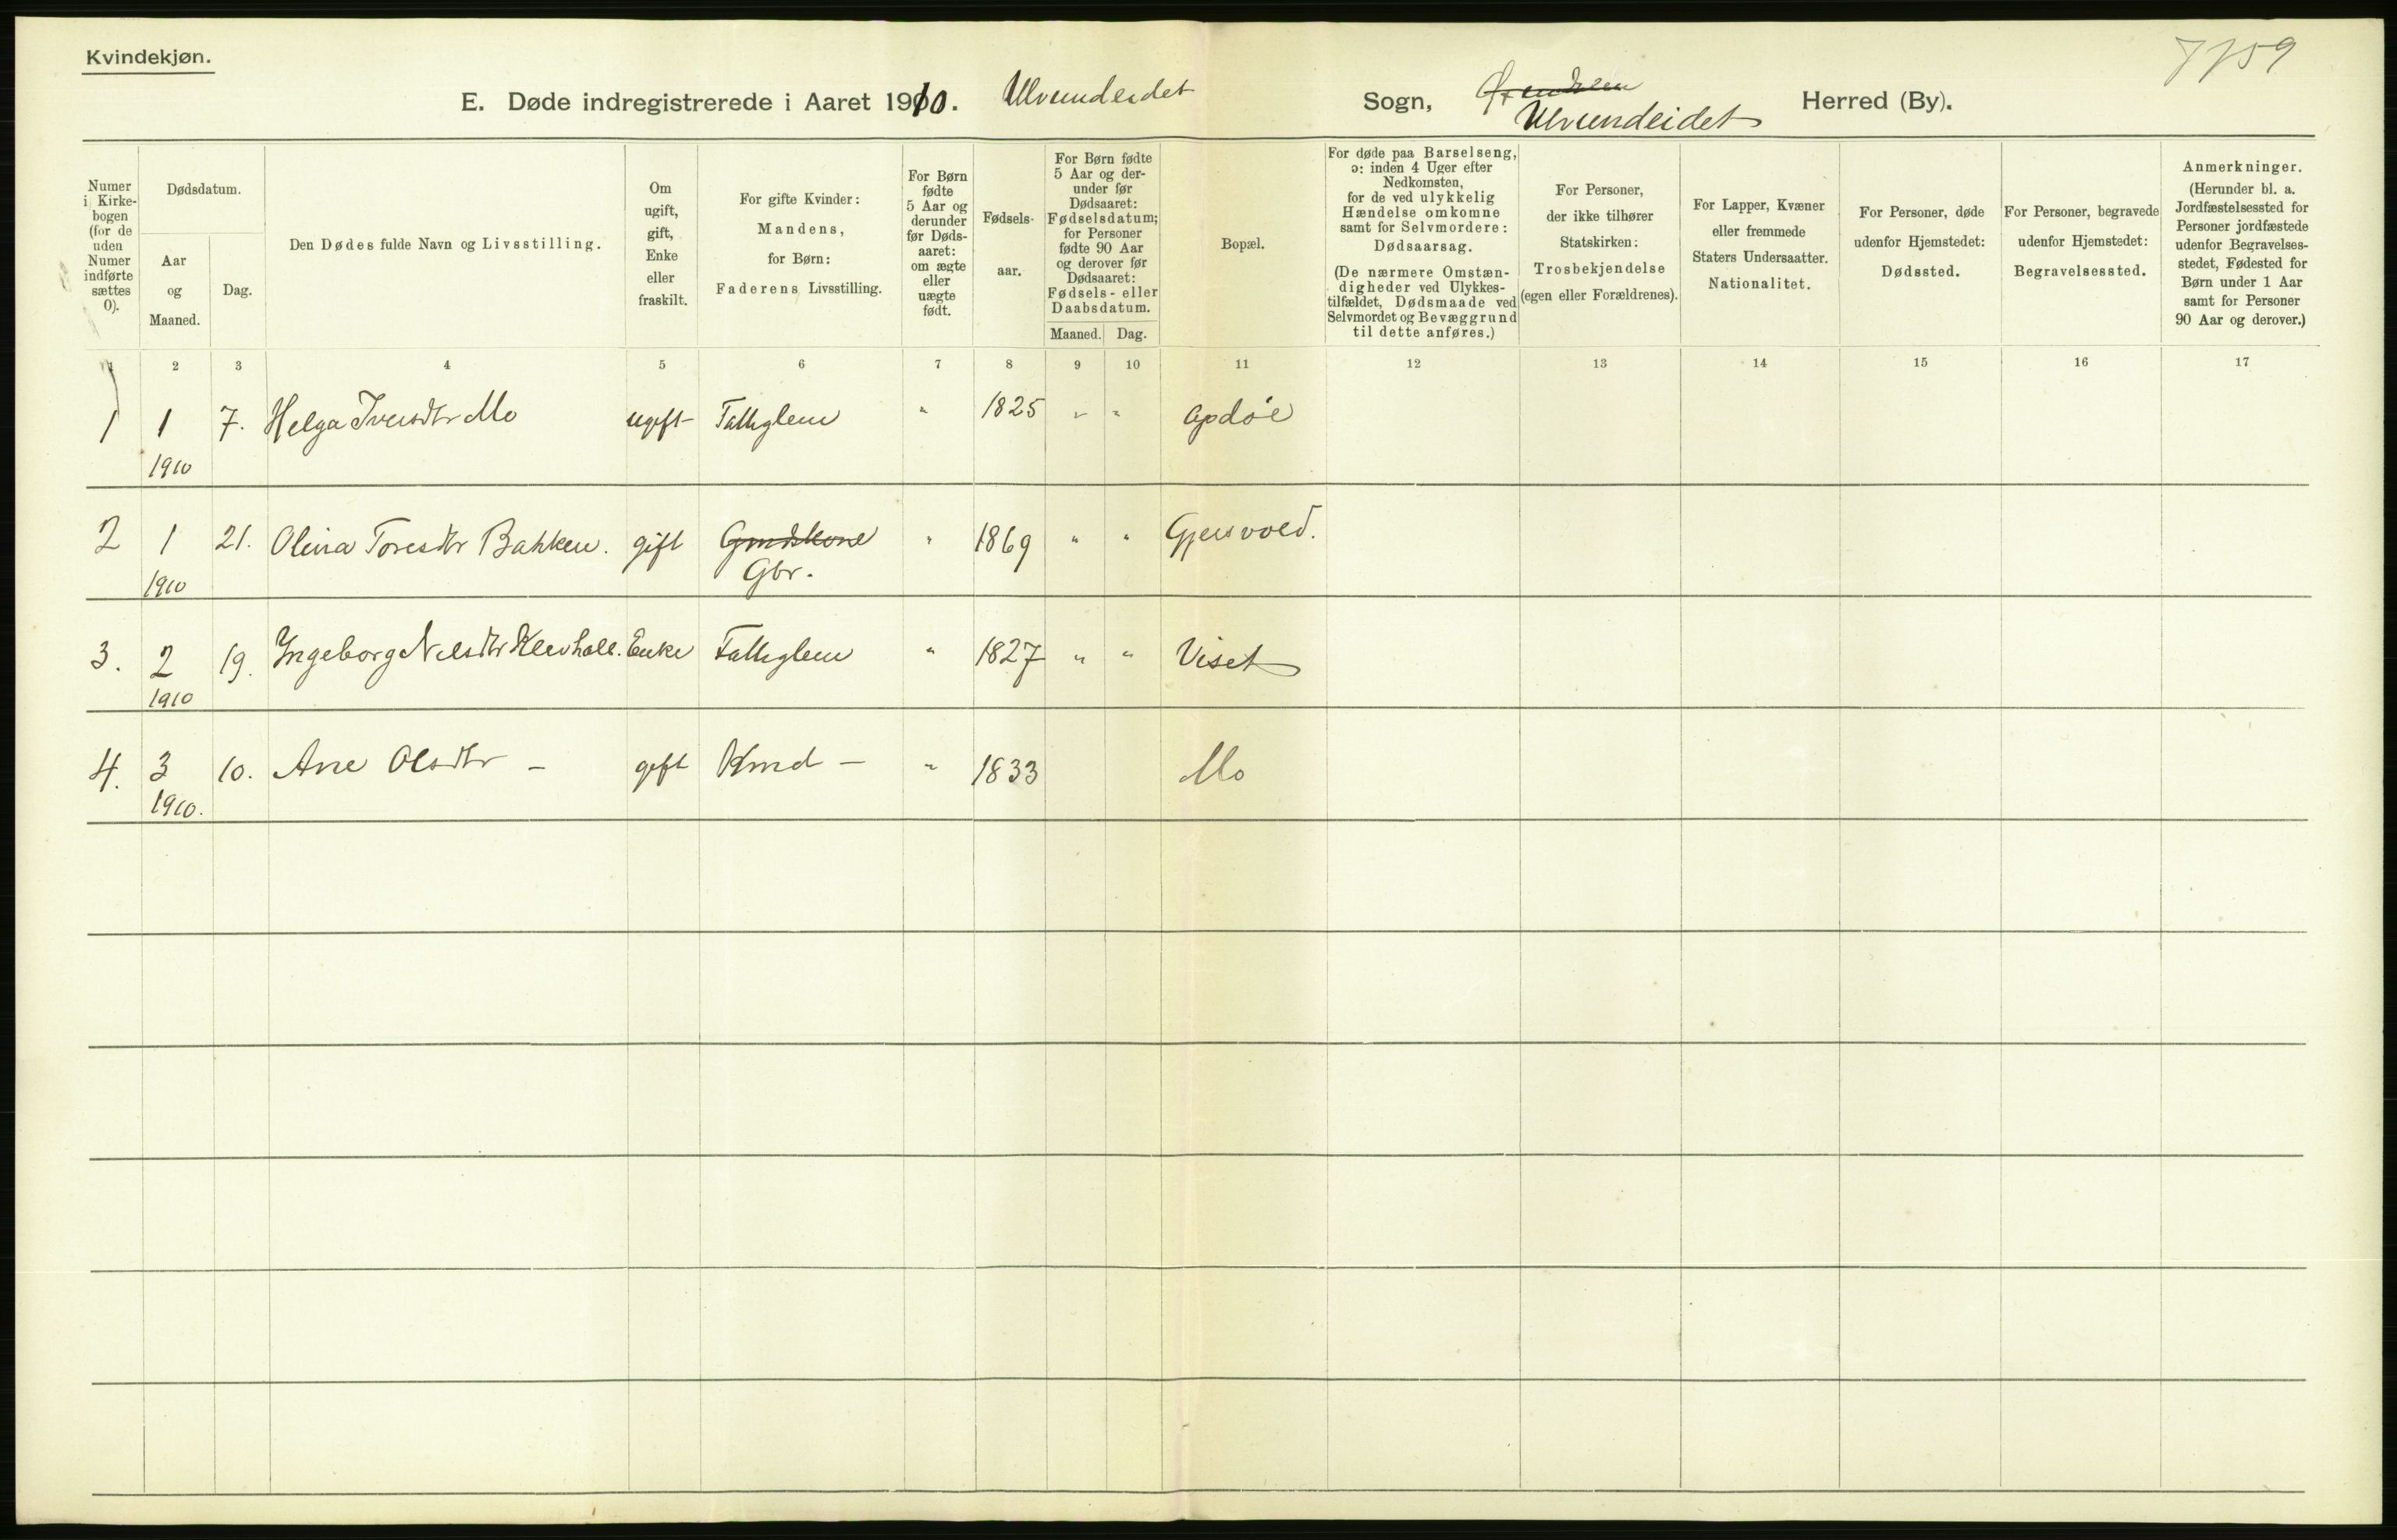 Kvindekjøn.
7759
E. Døde indregistrerede i Aaret 1910. Ulvundeidet Sogn, Ulvundeidet Herred (By).
Numer i Kirkebogen (for de uden Numer indførte sættes 0).
Dødsdatum.
Aar og Maaned.
Dag.
Den Dødes fulde Navn og Livsstilling.
Om ugift, gift, Enke eller fraskilt.
For gifte Kvinder: Mandens, for Børn: Faderens Livsstilling.
For Børn fødte 5 Aar og derunder før Dødsaaret: om ægte eller uægte født.
Fødselsaar.
For Børn fødte 5 Aar og derunder før Dødsaaret: Fødselsdatum; for Personer fødte 90 Aar og derover før Dødsaaret: Fødsels- eller Daabsdatum.
Maaned. Dag.
Bopæl.
For døde paa Barselseng, ɔ: inden 4 Uger efter Nedkomsten, for de ved ulykkelig Hændelse omkomne samt for Selvmordere: Dødsaarsag. (De nærmere Omstændigheder ved Ulykkestilfældet, Dødsmaade ved Selvmordet og Bevæggrund til dette anføres.)
For Personer, der ikke tilhører Statskirken: Trosbekjendelse (egen eller Forældrenes).
For Lapper, Kvæner eller fremmede Staters Undersaatter. Nationalitet.
For Personer, døde udenfor Hjemstedet: Dødssted.
For Personer, begravede udenfor Hjemstedet: Begravelsessted.
Anmerkninger. (Herunder bl. a. Jordfæstelsessted for Personer jordfæstede udenfor Begravelsesstedet, Fødested for Børn under 1 Aar samt for Personer 90 Aar og derover.)
1 2 3 4 5 6 7 8 9 10 11 12 13 14 15 16 17
1 1 7. Helga Iversdtr Mo ugift Fattiglem " 1825 " " Opdøl
1910
2 1 21. Olina Toresdtr Bakken. gift Gmdskone " 1869 " " Gjersvold.
1910 Gbr.
3. 2 19. Ingeborg Nilsdtr Klevhall. Enke Fattiglem " 1827 " " Viset
1910
4. 3 10. Ane Olsdtr - gift Kmd - " 1833 Mo
1910.